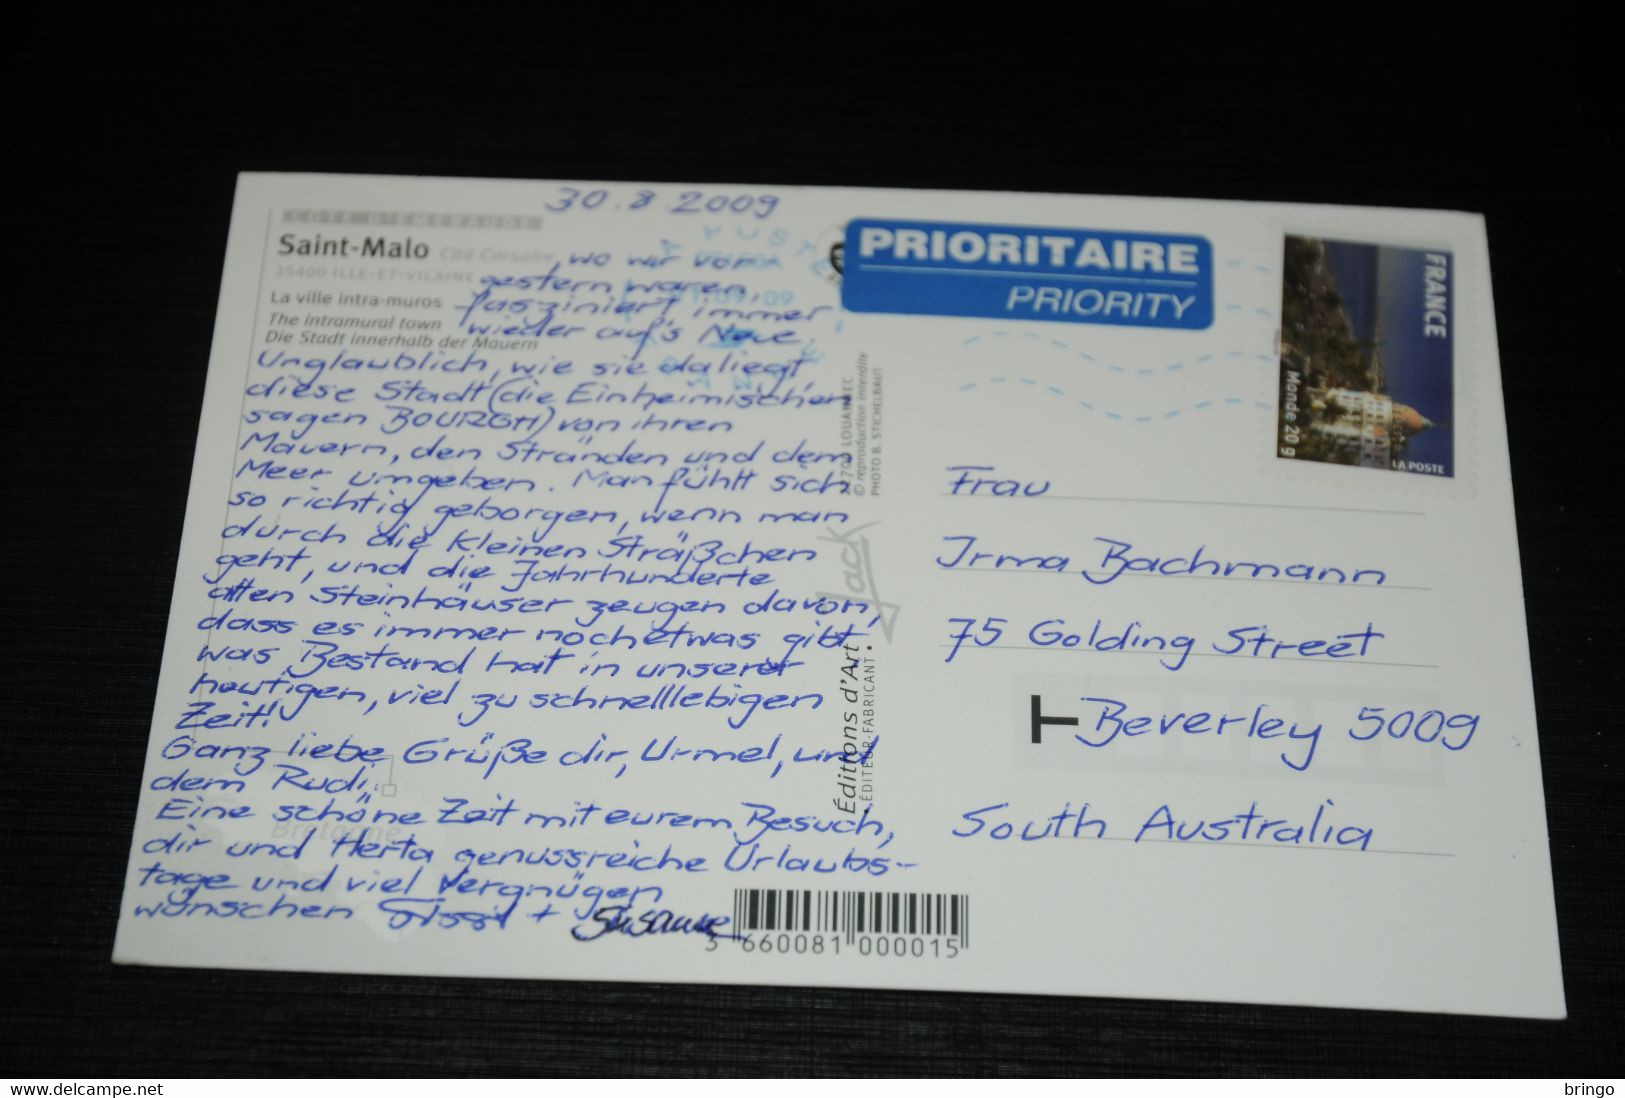 30.8.2009
CÔTE D'ÉMERAUDE
Saint-Malo Cité Corsaire
35400 ILLE-ET-VILAINE
La ville intra-muros
The intramural town
Die Stadt innerhalb der Mauern
, wo wir vor-
gestern waren,
fasziniert immer
wieder auf's Neue.
Unglaublich, wie sie daliegt,
diese Stadt (die Einheimischen
sagen BOURGH) von ihren
Mauern, den Stränden und dem
Meer umgeben. Man fühlt sich
so richtig geborgen, wenn man
durch die kleinen Sträßchen
geht, und die Jahrhunderte
alten Steinhäuser zeugen davon,
dass es immer noch etwas gibt,
was Bestand hat in unserer
heutigen, viel zu schnelllebigen
Zeit!
Ganz liebe Grüße dir, Urmel, und
dem Rudi,
Eine schöne Zeit mit eurem Besuch,
dir und Herta genussreiche Urlaubs-
tage und viel Vergnügen
wünschen + Susanne
Bretagne
22700 LOUANNEC
© reproduction interdite
PHOTO B. STICHELBAUT
Jack
Éditions d'Art
ÉDITEUR-FABRICANT
3 660081 000015
01.09.09
PRIORITAIRE
PRIORITY
FRANCE
Monde 20g
LA POSTE
Frau
Irma Bachmann
75 Golding Street
T Beverley 5009
South Australia
delcampe.net
bringo